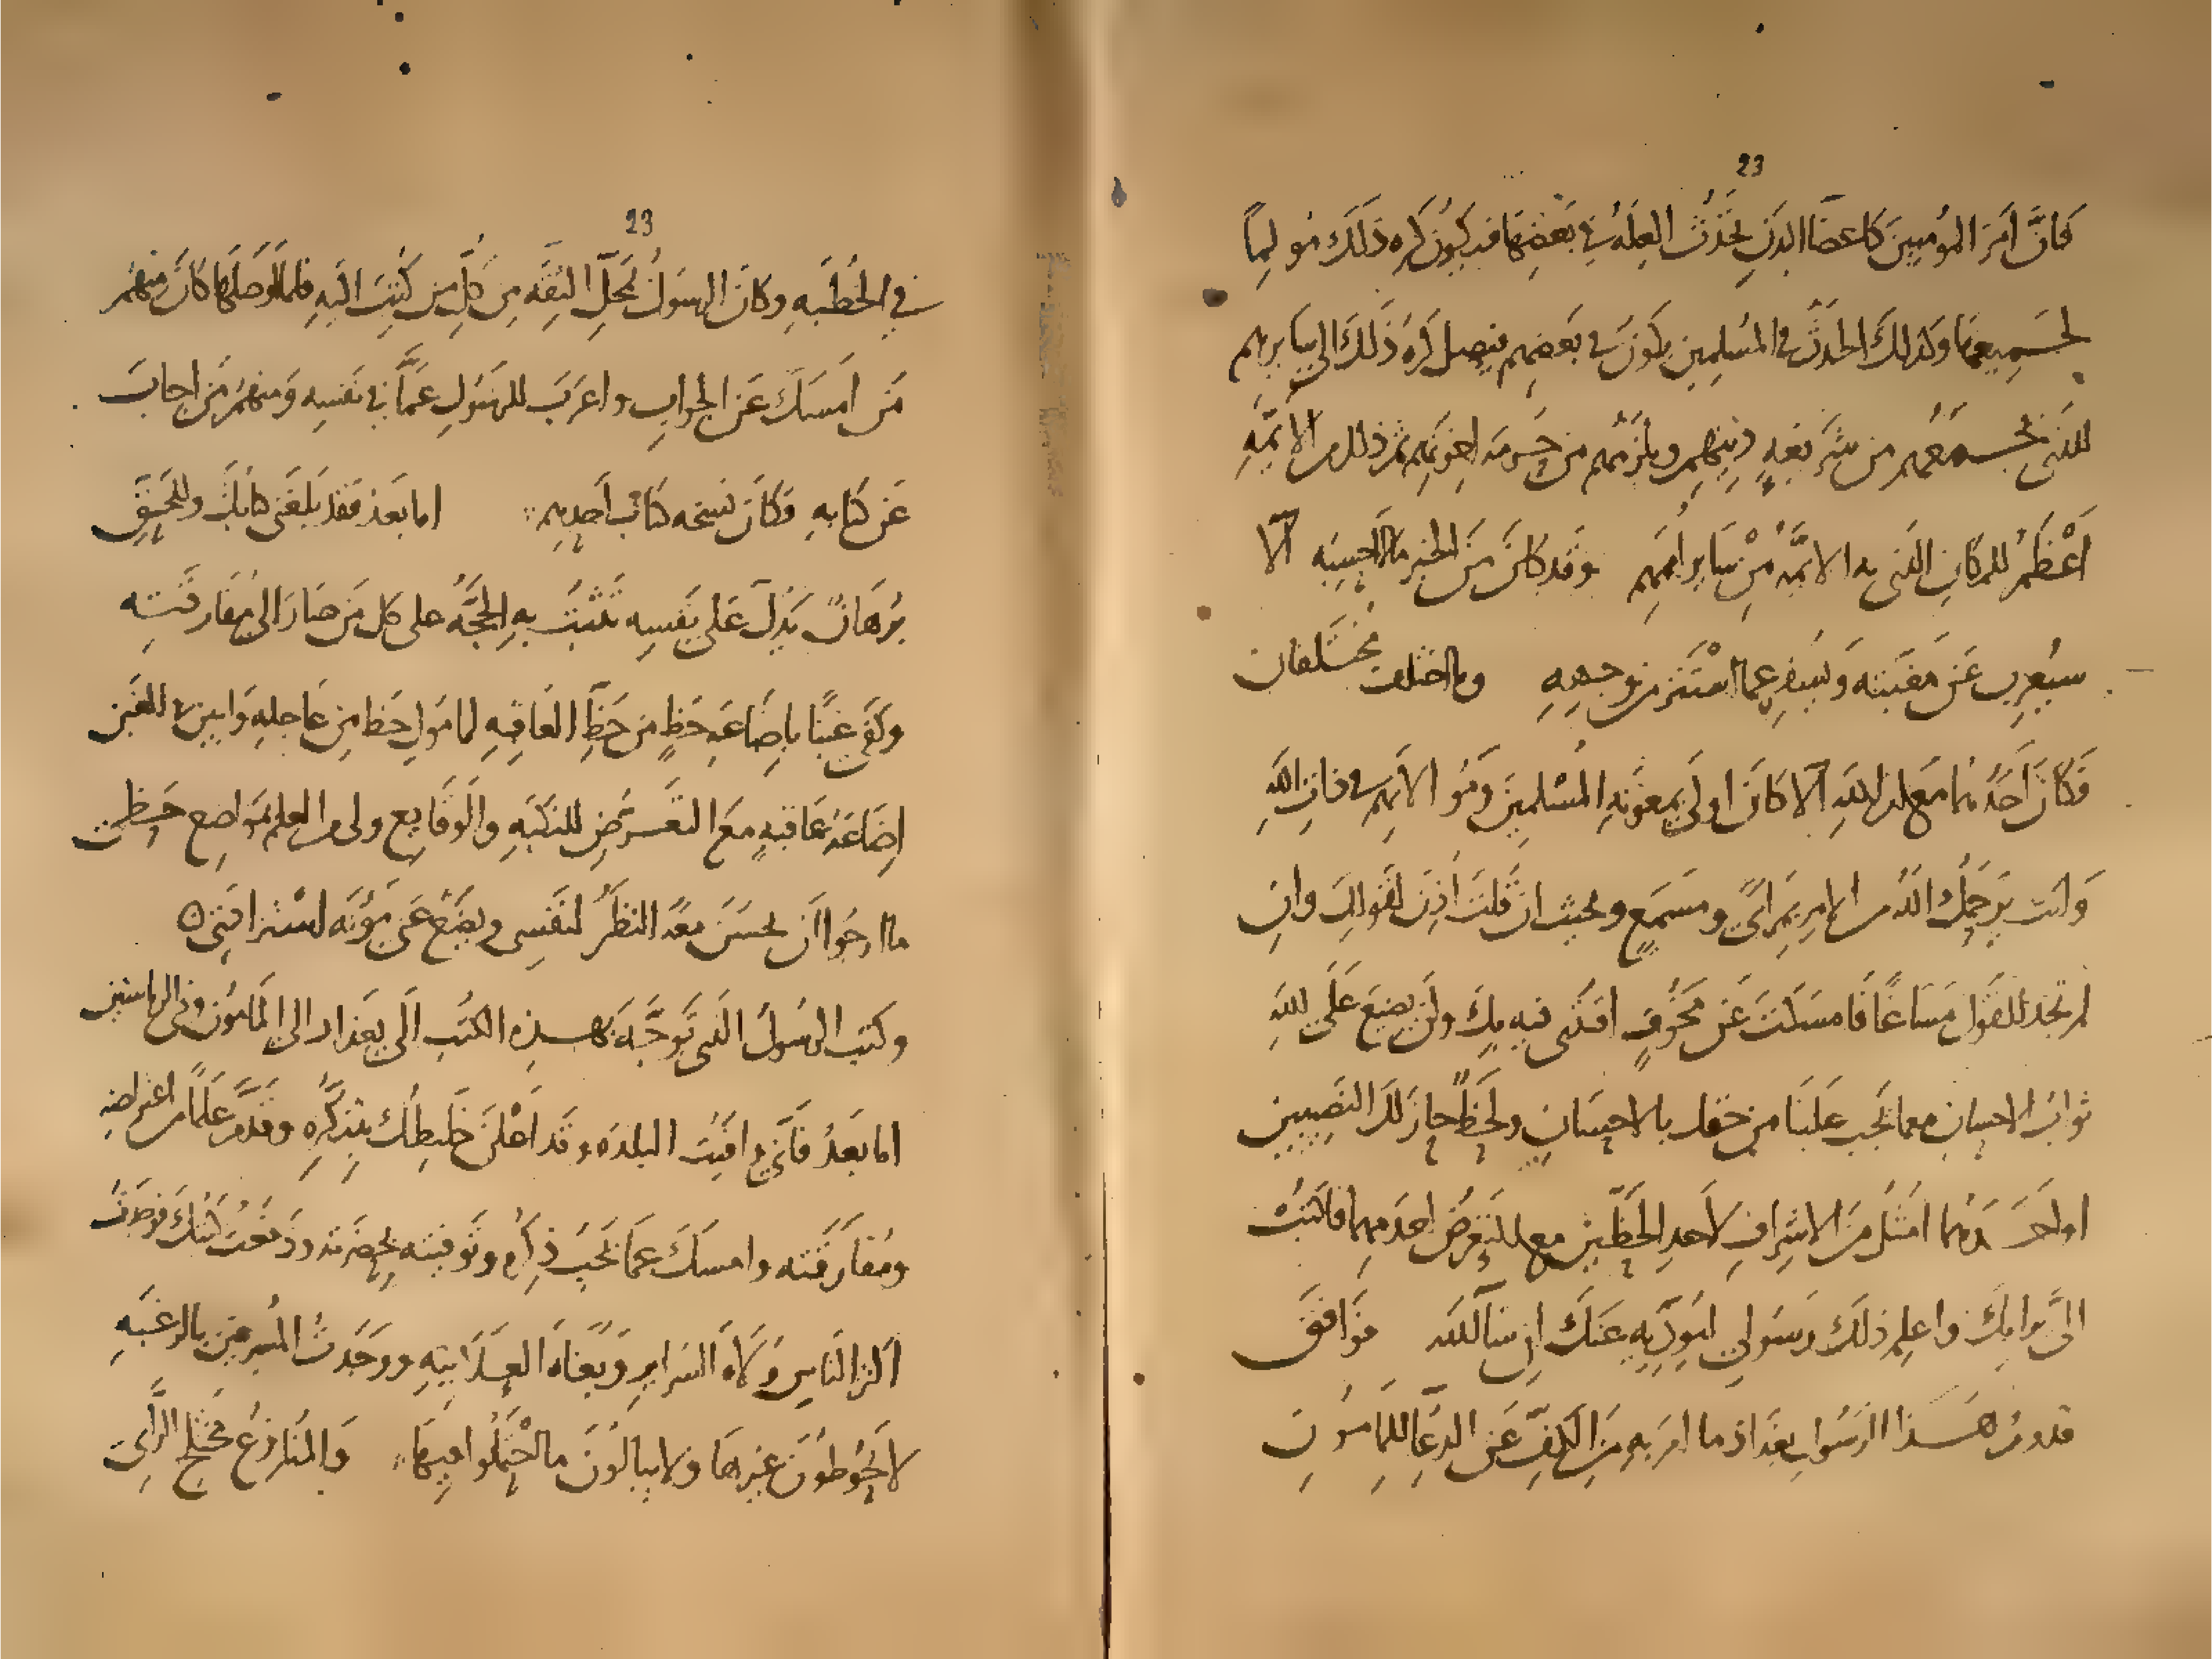 23
كَانَّ اَمرَ المُومِنينَ كاعضَا البَدَنِ تحدُثُ العِلَّهُ في بَعضِهَا فيكونُ كره ذلكَ مُولمًا
لجميعهَا وَكذلكَ الحدَثُ في المُسْلِمين يكونُ في بَعضِهِم فيصِل كره ذَلكَ الى سَايرهم
للذى يجمعُهم من شَريعهِ دِينهِم ويلزَمُهم من حُرمه اخوتهِم ثم ذلك من الايمّهِ
اعْظَمُ للمكَانِ الذى به الايمَّهُ مِنْ سَاير اُمَمِهِم وَقد كَانَ مِنَ الخبر مالا احسبه الا
سيُعرب عَن مَغيبته وَيسفر عما استتر من وجهِهِ وما اختلف مُختلفان
فَكانَ اَحَدُهما مَع امر اللهِ الا كانَ اولى بمعونهِ المُسْلمينَ وَهو الاثره في ذات اللهِ
وَانت يَرحمُك اللهُ من الامر بمَراىً ومَسمَعٍ وبحيث ان قلتَ اُذِنَ لقولِكَ وان
لم تجد للقولِ مَسَاغًا فَامسَكتَ عَن مَخُوفٍ اقتدى فيه بك وَلن يضِيعَ عَلَى اللهِ
ثوابُ الاحسانِ مع ما يَجب علينَا من حقك بالاحِسَانِ ولحظٌّ حازَ لك النصيبين
او احدَهُما امثلُ مِنَ الاشرافِ لاَحدِ الحظّين مع التعرُّض لعدَمِهما فاكتبْ
الىَّ برايكَ واعلِم ذلكَ رَسولى ليُؤدّيهِ عَنكَ ان شا الله فوَافقَ
قدومُ هَذا الرسُولِ بغدَاذ ما امر بهِ مِنَ الكفِّ عن الدعَا للمامُونِ
23
في الخُطبَهِ وكانَ الرسُولُ بمحلِّ الثقَه مِن كُلِّ مَن كُتِبَ اليهِ فلما اَوصَلَها كانَ منهُم
مَن اَمسَكَ عَن الجوابِ واعرَبَ للرسُولِ عمَّا في نفسِه وَمنهُم مَن اجابَ
عَن كتابهِ فكانَ نسخه كتاب اَحدِهِم اما بَعدُ فقد بَلغنى كتابُكَ وللحَقِّ
بُرهَانٌ يَدُلّ عَلى نَفسِه تَثبُتُ بهِ الحُجَّه على كل مَن صَارَ الى مفَارقَتِه
وكفَى غبنًا باِضَاعَهِ حَظٍ من حَظِّ العَاقبهِ لمامُولِ حَظٍ مِن عَاجلهِ وَابينُ من الغَبن
اِضَاعَهُ عَاقبهٍ معَ التعَرُّضِ للنكبَهِ والوقايع ولى من العلم بمَواضِع حَظى
ما ارجُوا اَن يحسُنَ معَه النظَرُ لنفسِى ويضَعَ عنى مَؤنَه استزادَتى ه
وكتب الرسُولُ الذى توَجَّهَ بهَذِهِ الكُتُب الَى بغَداد الى المَامُون وذى الرياستين
اما بَعدُ فَانى وافَيتُ البلدَه وقد اَعْلنَ خَليطك بتنكُّرِهِ وقدَّمَ علَمًا من اعتراضهِ
ومُفارقَته وامسكَ عمَّا يَجبُ ذِكرُه وتَوفيته بحضرَته ودَفعتُ كتبَكَ فوجَدتُ
اكثر النَاسِ وُلاةَ السَرايرِ وَبغَاهَ العَلاَنيَهِ ووَجَدتُ المُشرفين بالرغبَهِ
لا يَحُوطونَ غيرهَا ولا يبالُونَ ما احْتَمَلُوا فيهَا وَالمُنازعُ مختلج الرّاىِ